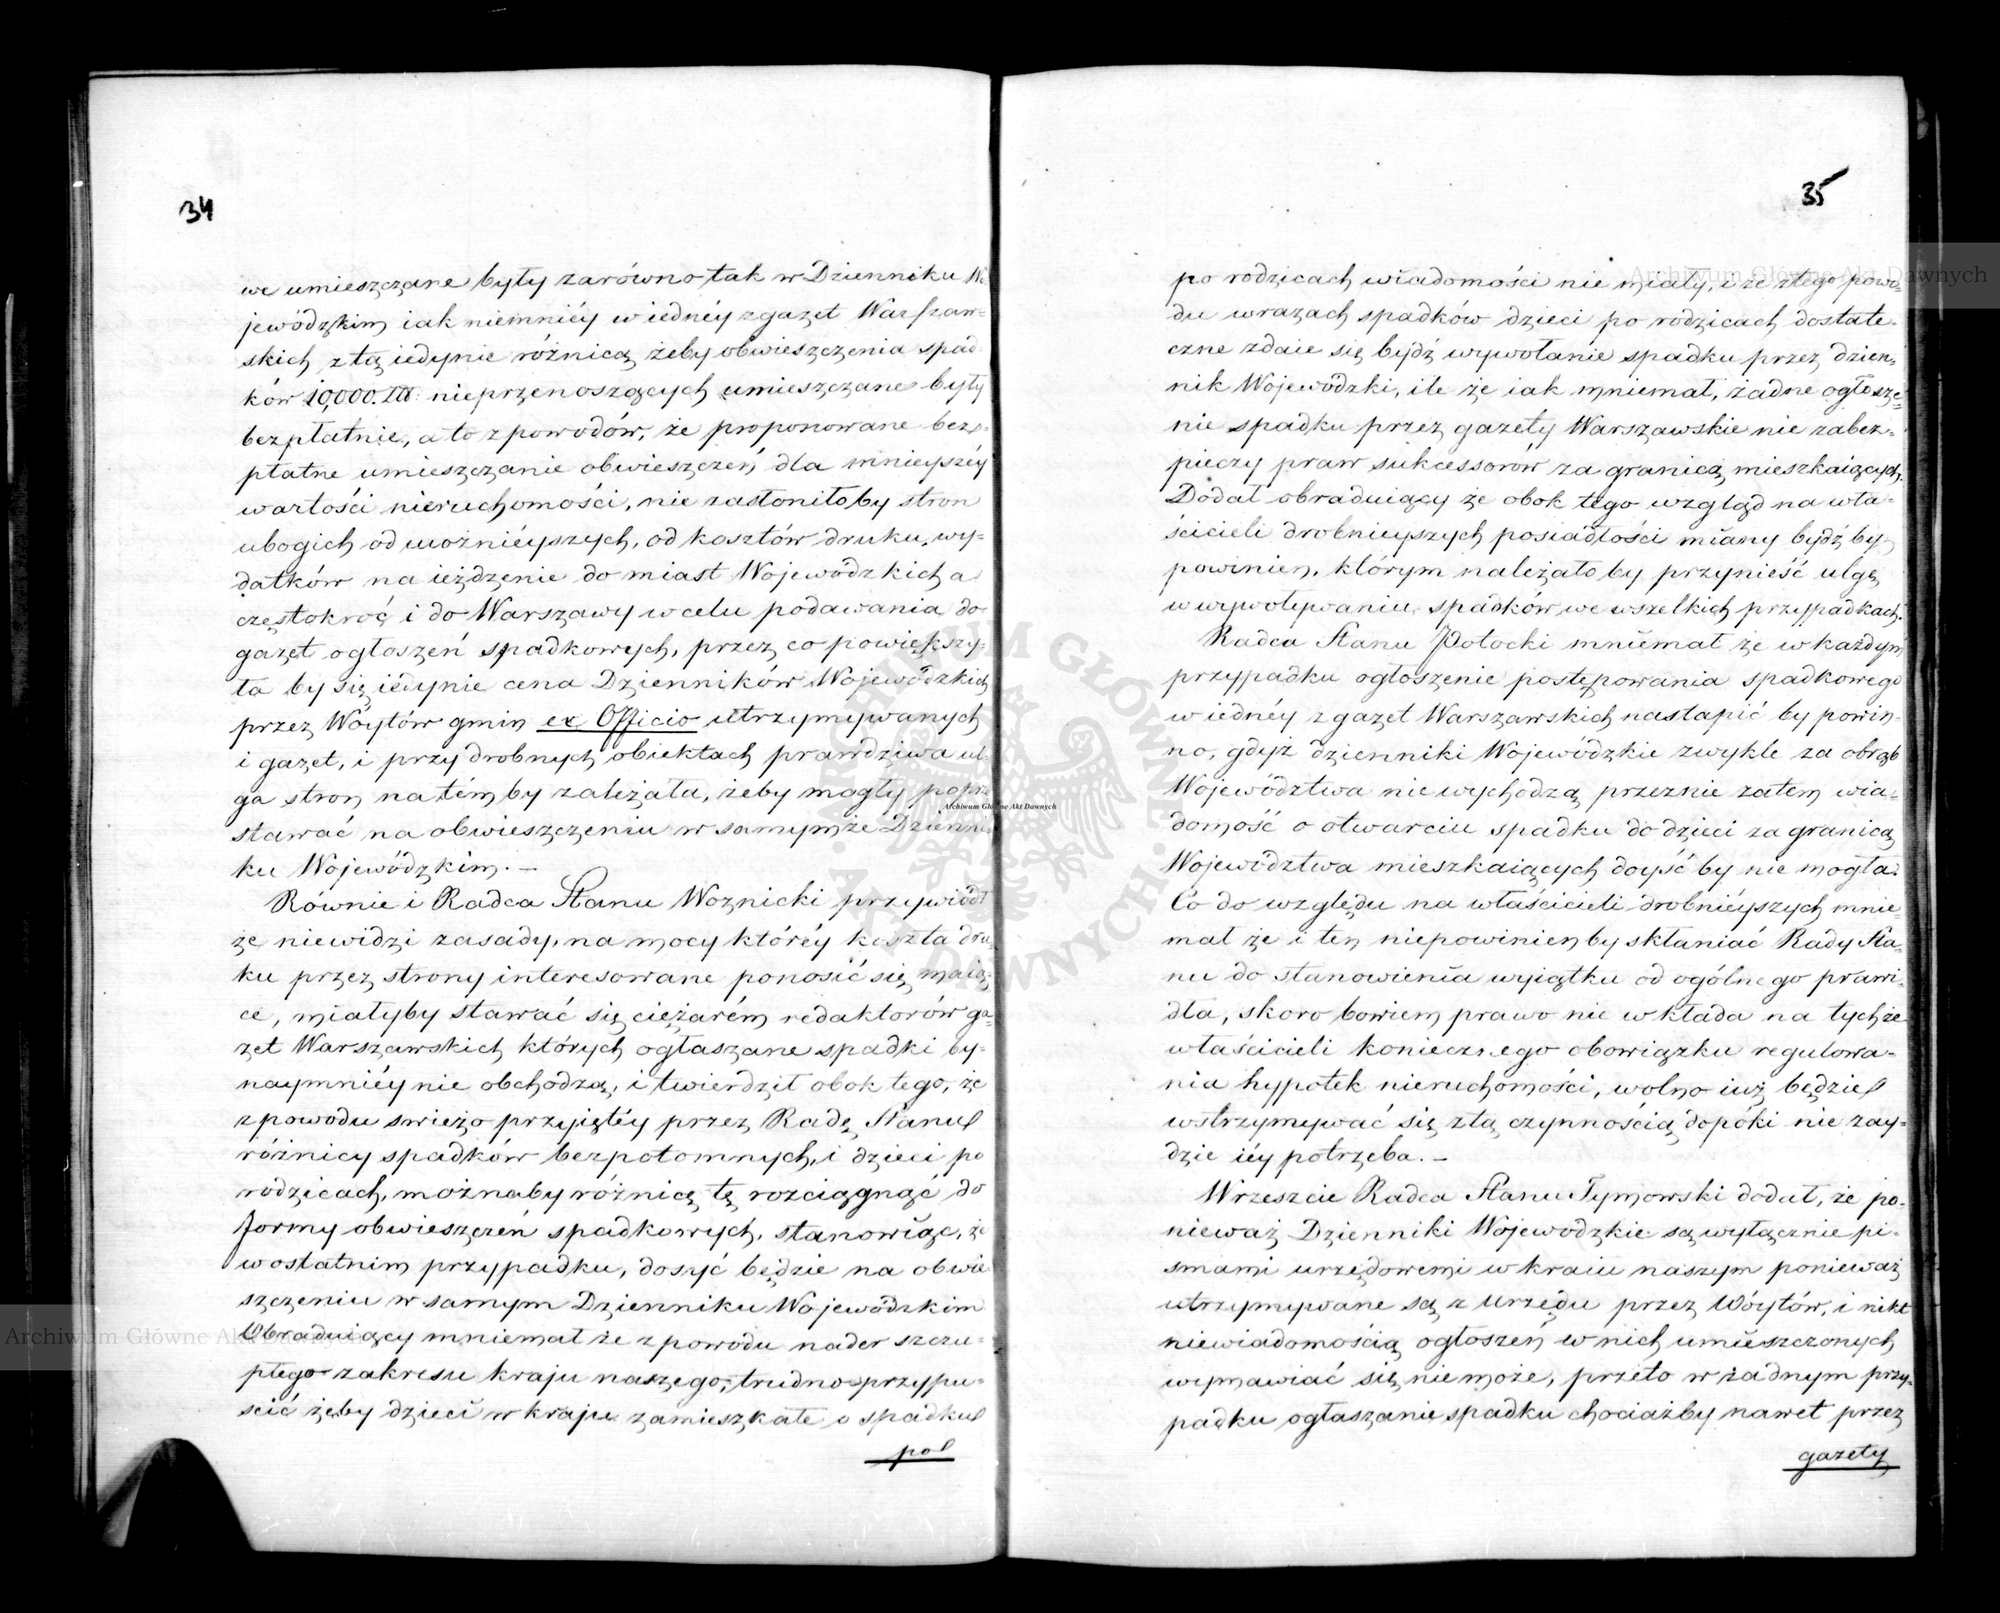 34
we umieszczane były zarówno tak w Dzienniku Wo
jewódzkim iak niemniéy w iednéy z gazet Warszaw-
skich z tą iedynie różnicą żeby obwieszczenia spad-
ków 10,000. Zł: nieprzenoszących umieszczane były
bezpłatnie, a to z powodów, że proponowane bez-
płatne umieszczanie obwieszczeń dla mnieyszéy
wartości nieruchomości, nie zasłoniłoby stron
ubogich od możniéyszych, od kosztów druku, wy-
datków na ieżdzenie do miast Wojewódzkich a
częstokroć i do Warszawy w celu podawania do
gazet ogłoszeń spadkowych, przez co powiększy-
ła by się iedynie cena Dzienników Wojewódzkich
przez Wóytów gmin ex Officio utrzymywanych
i gazet, i przy drobnych obiektach prawdziwa ul-
ga stron na tém by zależała, żeby mogły poprze
stawać na obwieszczeniu w samymże Dzienni-
ku Wojewódzkim. —
Równie i Radca Stanu Woznicki przywiódł
że niewidzi zasady, na mocy któréy koszta dru-
ku przez strony interesowane ponosić się maią-
ce, miałyby stawać się ciężarém redaktorów ga-
zet Warszawskich których ogłaszane spadki by-
naymniéy nie obchodzą, i twierdził obok tego, że
z powodu swieżo przyiętéy przez Radę Stanu
różnicy spadków bezpotomnych, i dzieci po
rodzicach, możnaby różnicę tę rozciągnąć do
formy obwieszczeń spadkowych, stanowiąc, że
w ostatnim przypadku, dosyć będzie na obwie
szczeniu w samym Dzienniku Wojewódzkim
Obraduiący mniemał że z powodu nader szczu-
płego zakresu kraju naszego, trudno przypu-
ścić żeby dzieci w kraju zamieszkałe o spadku
po
35
po rodzicach wiadomości nie miały, i że z tego powo-
du w razach spadków dzieci po rodzicach dostate-
czne zdaie się bydź wywołanie spadku przez dzien-
nik Wojewódzki, ile że iak mniemał, żadne ogłosze-
nie spadku przez gazety Warszawskie nie zabez-
pieczy praw sukcessorów za granicą mieszkaiących.
Dodał obraduiący że obok tego wzgląd na wła-
ścicieli drobnieyszych posiadłości miany bydź by
powinien, którym należało by przynieść ulgę
w wywoływaniu spadków we wszelkich przypadkach.
Radca Stanu Potocki mniemał że w każdym
przypadku ogłoszenie postępowania spadkowego
w iednéy z gazet Warszawskich nastąpić by powin-
no, gdyż dzienniki Wojewódzkie zwykle za obręb
Województwa nie wychodzą, przeznie zatem wia-
domość o otwarciu spadku do dzieci za granicą
Województwa mieszkaiących doyść by nie mogła.
Co do względu na właścicieli drobniéyszych mnie-
mał że i ten niepowinien by skłaniać Rady Sta-
nu do stanowienia wyiątku od ogólnego prawi-
dła, skoro bowiem prawo nie wkłada na tychże
właścicieli koniecznego obowiązku regulowa-
nia hypotek nieruchomości, wolno iuż będzie
wstrzymywać się z tą czynnością dopóki nie zay-
dzie iéy potrzeba. —
Wrzeszcie Radca Stanu Tymowski dodał, że po-
nieważ Dzienniki Wojewódzkie są wyłącznie pi-
smami urzędowemi w kraiu naszym ponieważ
utrzymywane są z Urzędu przez Wóytów, i nikt
niewiadomością ogłoszeń w nich umieszczonych
wymawiać się niemoże, przeto w żadnym przy-
padku ogłaszanie spadku chociażby nawet przez
gazety
Archiwum Główne Akt Dawnych
Archiwum Główne Akt Dawnych
Archiwum Główne Akt Dawnych
ARCHIWUM GŁÓWNE AKT DAWNYCH